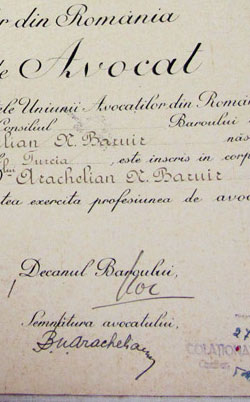 lor din România
de Avocat
ele Uniunii Avocaților din Româ
Consiliul Baroului
lian N. Baruir năs
Turcia, este inscris in corp
Arachelian N. Baruir
tea exercita profesiunea de avoc
Decanul Baroului,
Semnătura avocatului,
B. N. Arachelian
COLAȚIONA